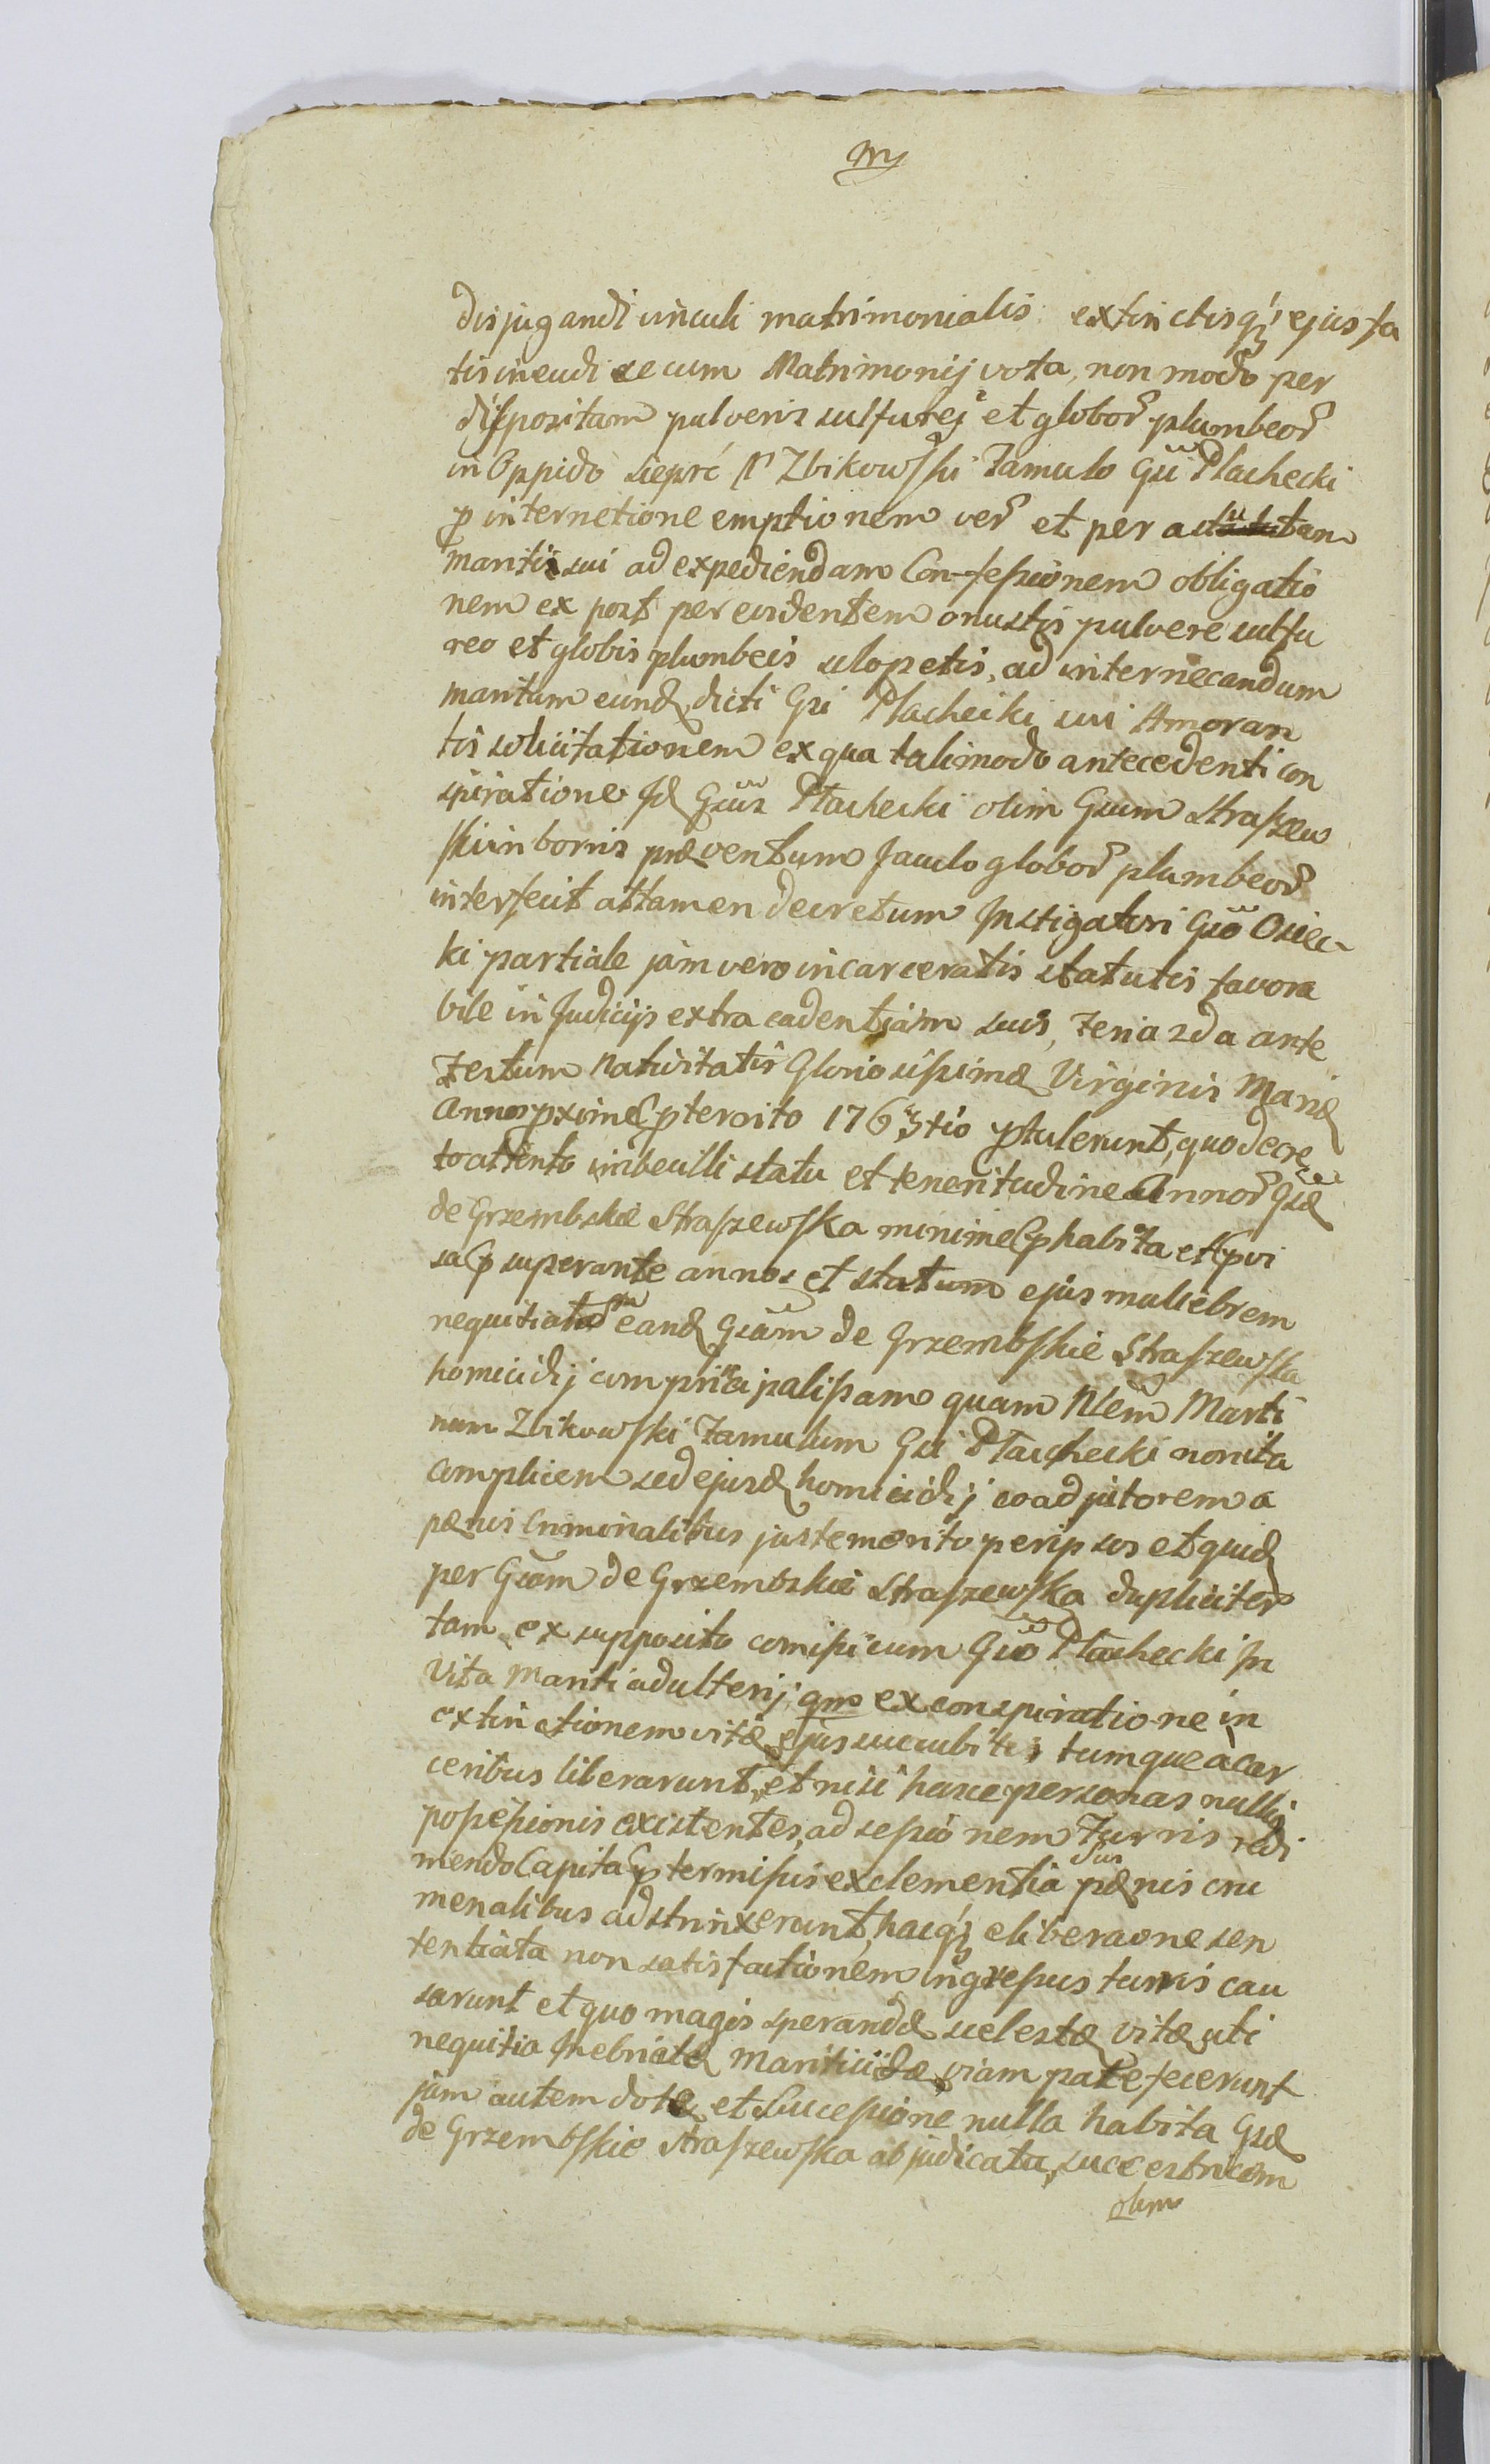 disjugandi vinculi matrimonialis extinctisq; ejus fa
tis ineudi secum Matrimonij vota, non modo per
dispositam pulveris sulfurej et globor plumbeor
in Oppido Sieprć N Zbikowski Famulo Gsi Płachecki
p internetione emptionem ver et per actutam
mariti sui ad expediendam Confessionem obligatio
nem ex post per evidentem onustis pulvere sulfu
reo et globis plumbeis sclopetis, ad internecandum
maritum eund dicti Gsi Płachecki sui Amoran
tis solicitationem ex qua tali modo antecedenti con
spiratione Id Gsus Płachecki olim Gsum Straszew
ski in bonis præventum Jaculo globor plumbeor
interfecit attamen decretum Instigatori Gso Osiec-
ki partiale jam vero incarceratis statutis favora
bile in Judicijs extra cadentiam suis, Feria 2da ante
Festum Nativitatis Gloriosissimæ Virginis Mariæ
Anno pxime pterito 1763tio ptulerunt, quo decre
to attento imbecilli statu et teneritudine Annor Gsæ
de Grzembskie Straszewska minime phabita et pvi
sa p superante annos et statum ejus muliebrem
nequitia eand Gsam de Grzembskie Straszewska
homicidij comprincipalissam quam Nlem Marti
num Zbikowski Famulum Gsi Płachecki non ita
complicem sed ejusd homicidij coadjutorem a
pænis Criminalibus juste merito per ipsos et quid
per Gsam de Grzembskie Straszewska dupliciter
tam ex supposito comissi cum Gso Płachecki in
Vita Mariti adulterij qm ex conspiratione in
extinctionem vitæ ejus succubitis tum que a car
ceribus liberarunt, et nisi hasce personas nullius
possessionis existentes, ad sessionem Turris redi
mendo Capita ptermissis ex clementia pænis cri
menalibus adstrinxerunt, hacq; eliberaone sen
tentiata non satisfactionem ingressus turris cau
sarunt et quo magis sperandæ scelestæ vitæ uti
nequitia Inebriatæ Mariticidæ viam patefecerunt
jam autem dote et Sucessione nulla habita Gsæ
de Grzembskie Straszewska abjudicata, sucestricem
olim